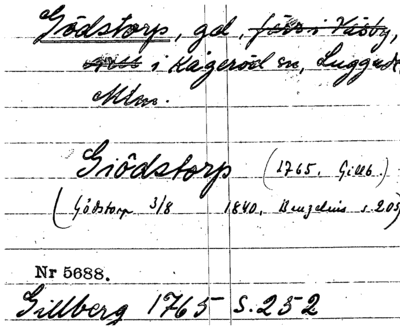 Gödstorp, gd, förr i Väsby,
i Kågeröd sn, Luggude
Mlm.
Giödstorp (1765. Gillb.)
(Gödstorp 3/8 1840, Benzelius s. 205)
Nr 5688.
Gillberg 1765 s. 252